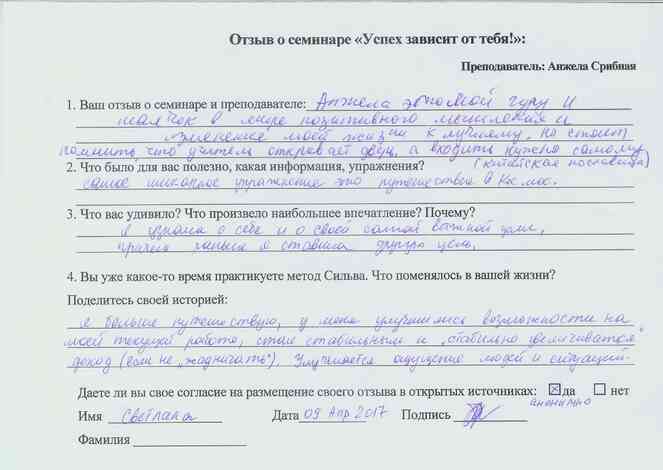 Отзыв о семинаре «Успех зависит от тебя!»:
Преподаватель: Анжела Срибная
1. Ваш отзыв о семинаре и преподавателе: Анжела это мой гуру и
маячок в мире позитивного мышления и
изменение моей жизни к лучшему. Но стоит
помнить, что учитель открывает дверь, а входить нужно самому
2. Что было для вас полезно, какая информация, упражнения? (китайская пословица)
самое шикарное упражнение это путешествие в Космос.
3. Что вас удивило? Что произвело наибольшее впечатление? Почему?
я узнала о себе и о своей самой важной цели,
причем раньше я ставила другую цель.
4. Вы уже какое-то время практикуете метод Сильва. Что поменялось в вашей жизни?
Поделитесь своей историей:
я больше путешествую, у меня улучшились возможности на
моей текущей работе, стал стабильным и „стабильно увеличиваться"
доход (если не „жадничать"). Улучшается ощущение людей и ситуаций.
Даете ли вы свое согласие на размещение своего отзыва в открытых источниках: ☒ да ☐ нет
анонимно
Имя Светлана Дата 09 Апр 2017 Подпись
Фамилия